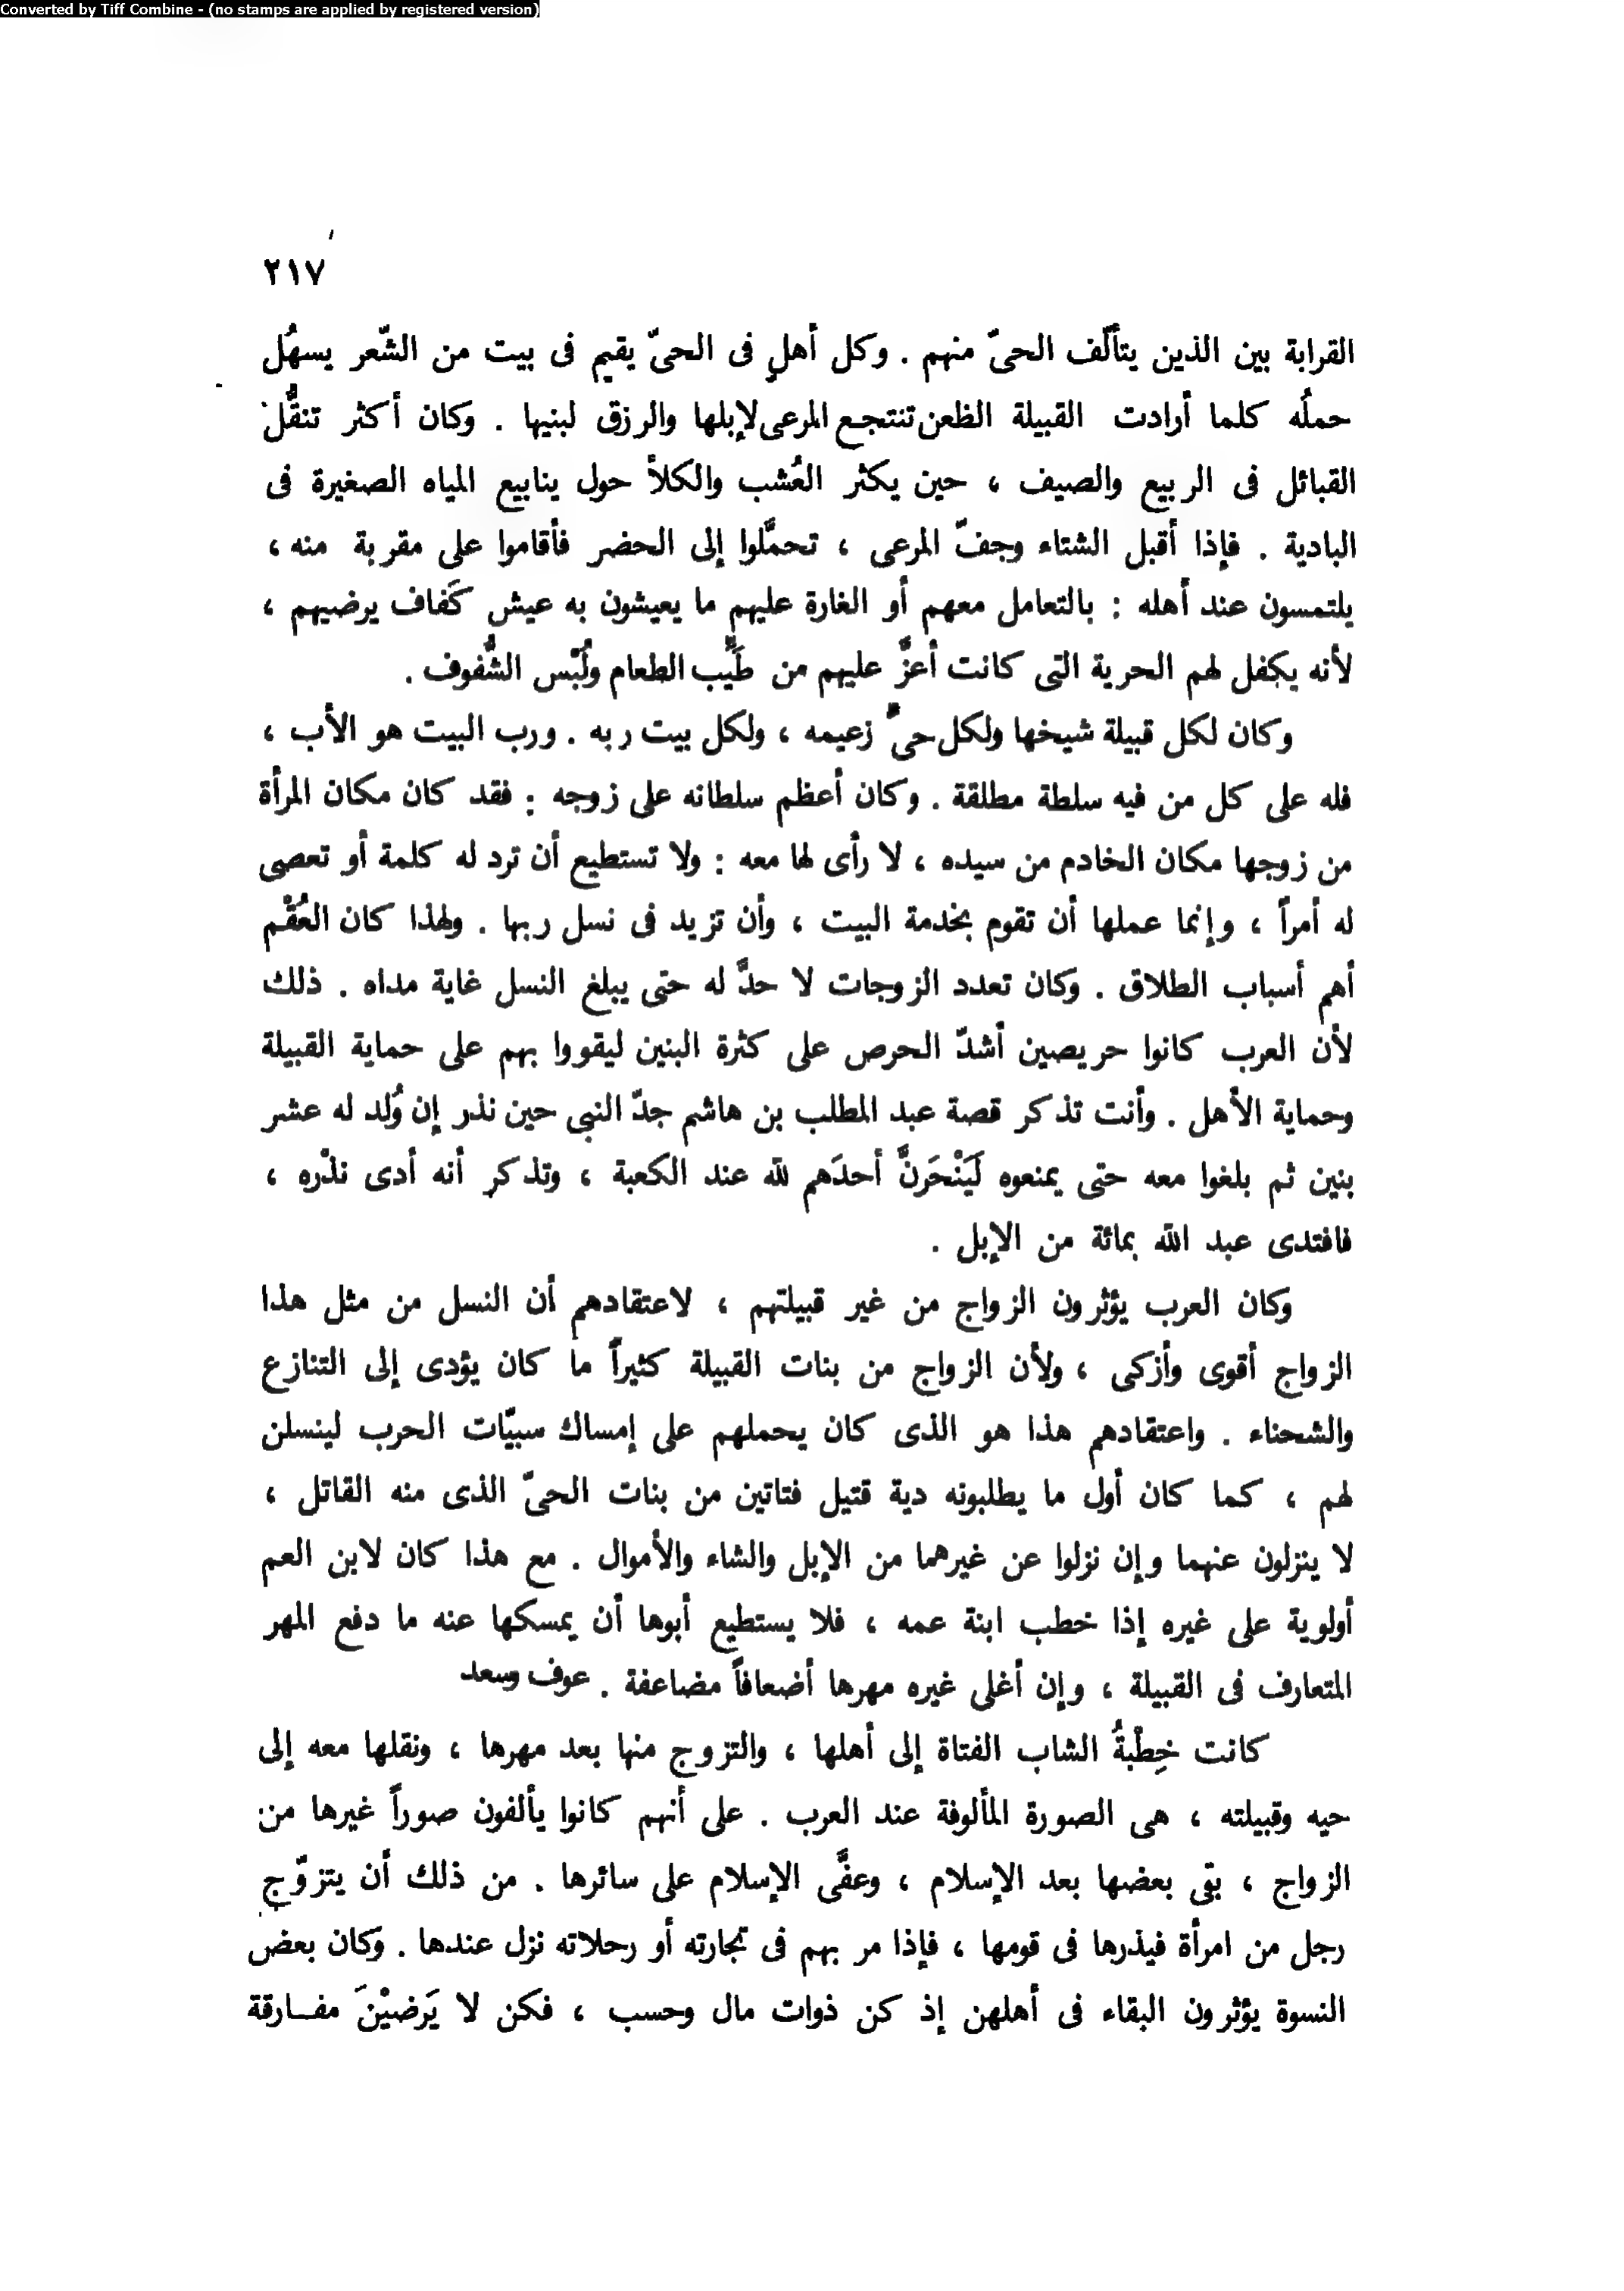 Converted by Tiff Combine - (no stamps are applied by registered version)
٢١٧
القرابة بين الذين يتألّف الحىّ منهم . وكل أهلٍ فى الحىّ يقيم فى بيت من الشّعر يسهُل
حملُه كلما أرادت القبيلة الظعن تنتجع المرعى لإبلها والرزق لبنيها . وكان أكثر تنقُّل
القبائل فى الربيع والصيف ، حين يكثر العُشب والكلأ حول ينابيع المياه الصغيرة فى
البادية . فإذا أقبل الشتاء وجفّ المرعى ، تحمَّلوا إلى الحضر فأقاموا على مقربة منه ،
يلتمسون عند أهله : بالتعامل معهم أو الغارة عليهم ما يعيشون به عيش كَفاف يرضيهم ،
لأنه يكفل لهم الحرية التى كانت أعزَّ عليهم من طَيِّب الطعام ولُبْس الشُّفوف .
وكان لكل قبيلة شيخها ولكل حىّ زعيمه ، ولكل بيت ربه . ورب البيت هو الأب ،
فله على كل من فيه سلطة مطلقة . وكان أعظم سلطانه على زوجه : فقد كان مكان المرأة
من زوجها مكان الخادم من سيده ، لا رأى لها معه : ولا تستطيع أن ترد له كلمة أو تعصى
له أمراً ، وإنما عملها أن تقوم بخدمة البيت ، وأن تزيد فى نسل ربها . ولهذا كان العُقْم
أهم أسباب الطلاق . وكان تعدد الزوجات لا حدَّ له حتى يبلغ النسل غاية مداه . ذلك
لأن العرب كانوا حريصين أشدّ الحرص على كثرة البنين ليقووا بهم على حماية القبيلة
وحماية الأهل . وأنت تذكر قصة عبد المطلب بن هاشم جدّ النبى حين نذر إن وُلد له عشر
بنين ثم بلغوا معه حتى يمنعوه لَيَنْحَرنَّ أحدَهم لله عند الكعبة ، وتذكر أنه أدى نذْره ،
فافتدى عبد الله بمائة من الإبل .
وكان العرب يؤثرون الزواج من غير قبيلتهم ، لاعتقادهم أن النسل من مثل هذا
الزواج أقوى وأزكى ، ولأن الزواج من بنات القبيلة كثيراً ما كان يؤدى إلى التنازع
والشحناء . واعتقادهم هذا هو الذى كان يحملهم على إمساك سبيّات الحرب لينسلن
لهم ، كما كان أول ما يطلبونه دية قتيل فتاتين من بنات الحىّ الذى منه القاتل ،
لا ينزلون عنهما وإن نزلوا عن غيرهما من الإبل والشاء والأموال . مع هذا كان لابن العم
أولوية على غيره إذا خطب ابنة عمه ، فلا يستطيع أبوها أن يمسكها عنه ما دفع المهر
المتعارف فى القبيلة ، وإن أغلى غيره مهرها أضعافاً مضاعفة . عوف وسعد
كانت خِطْبةُ الشاب الفتاة إلى أهلها ، والتزوج منها بعد مهرها ، ونقلها معه إلى
حيه وقبيلته ، هى الصورة المألوفة عند العرب . على أنهم كانوا يألفون صوراً غيرها من
الزواج ، بقى بعضها بعد الإسلام ، وعفَّى الإسلام على سائرها . من ذلك أن يتزوّج
رجل من امرأة فيذرها فى قومها ، فإذا مر بهم فى تجارته أو رحلاته نزل عندها . وكان بعض
النسوة يؤثرون البقاء فى أهلهن إذ كن ذوات مال وحسب ، فكن لا يَرضيْنَ مفـارقة